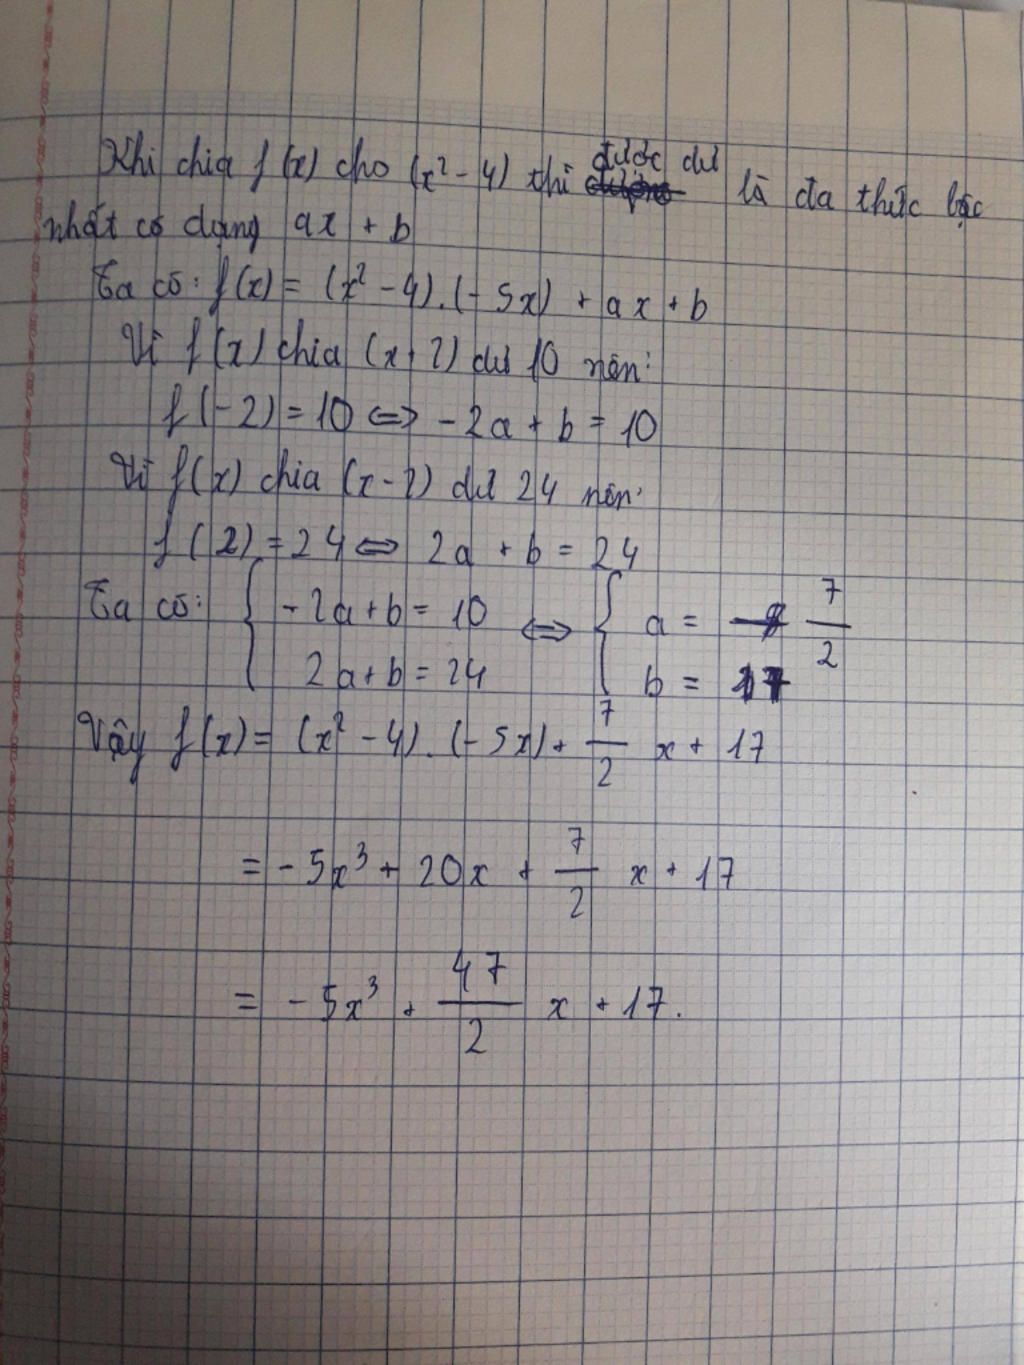 Khi chia f(x) cho (x² - 4) thì được dư là đa thức bậc
nhất có dạng ax + b
Ta có: f(x) = (x² - 4).(-5x) + ax + b
Vì f(x) chia (x+2) dư 10 nên:
f(-2) = 10 ⇔ -2a + b = 10
Vì f(x) chia (x-2) dư 24 nên:
f(2) = 24 ⇔ 2a + b = 24
Ta có: { -2a+b = 10 ⇔ { a = 7/2
2a+b = 24 b = 17
Vậy f(x) = (x² - 4).(-5x) + 7/2 x + 17
= -5x³ + 20x + 7/2 x + 17
= -5x³ + 47/2 x + 17.